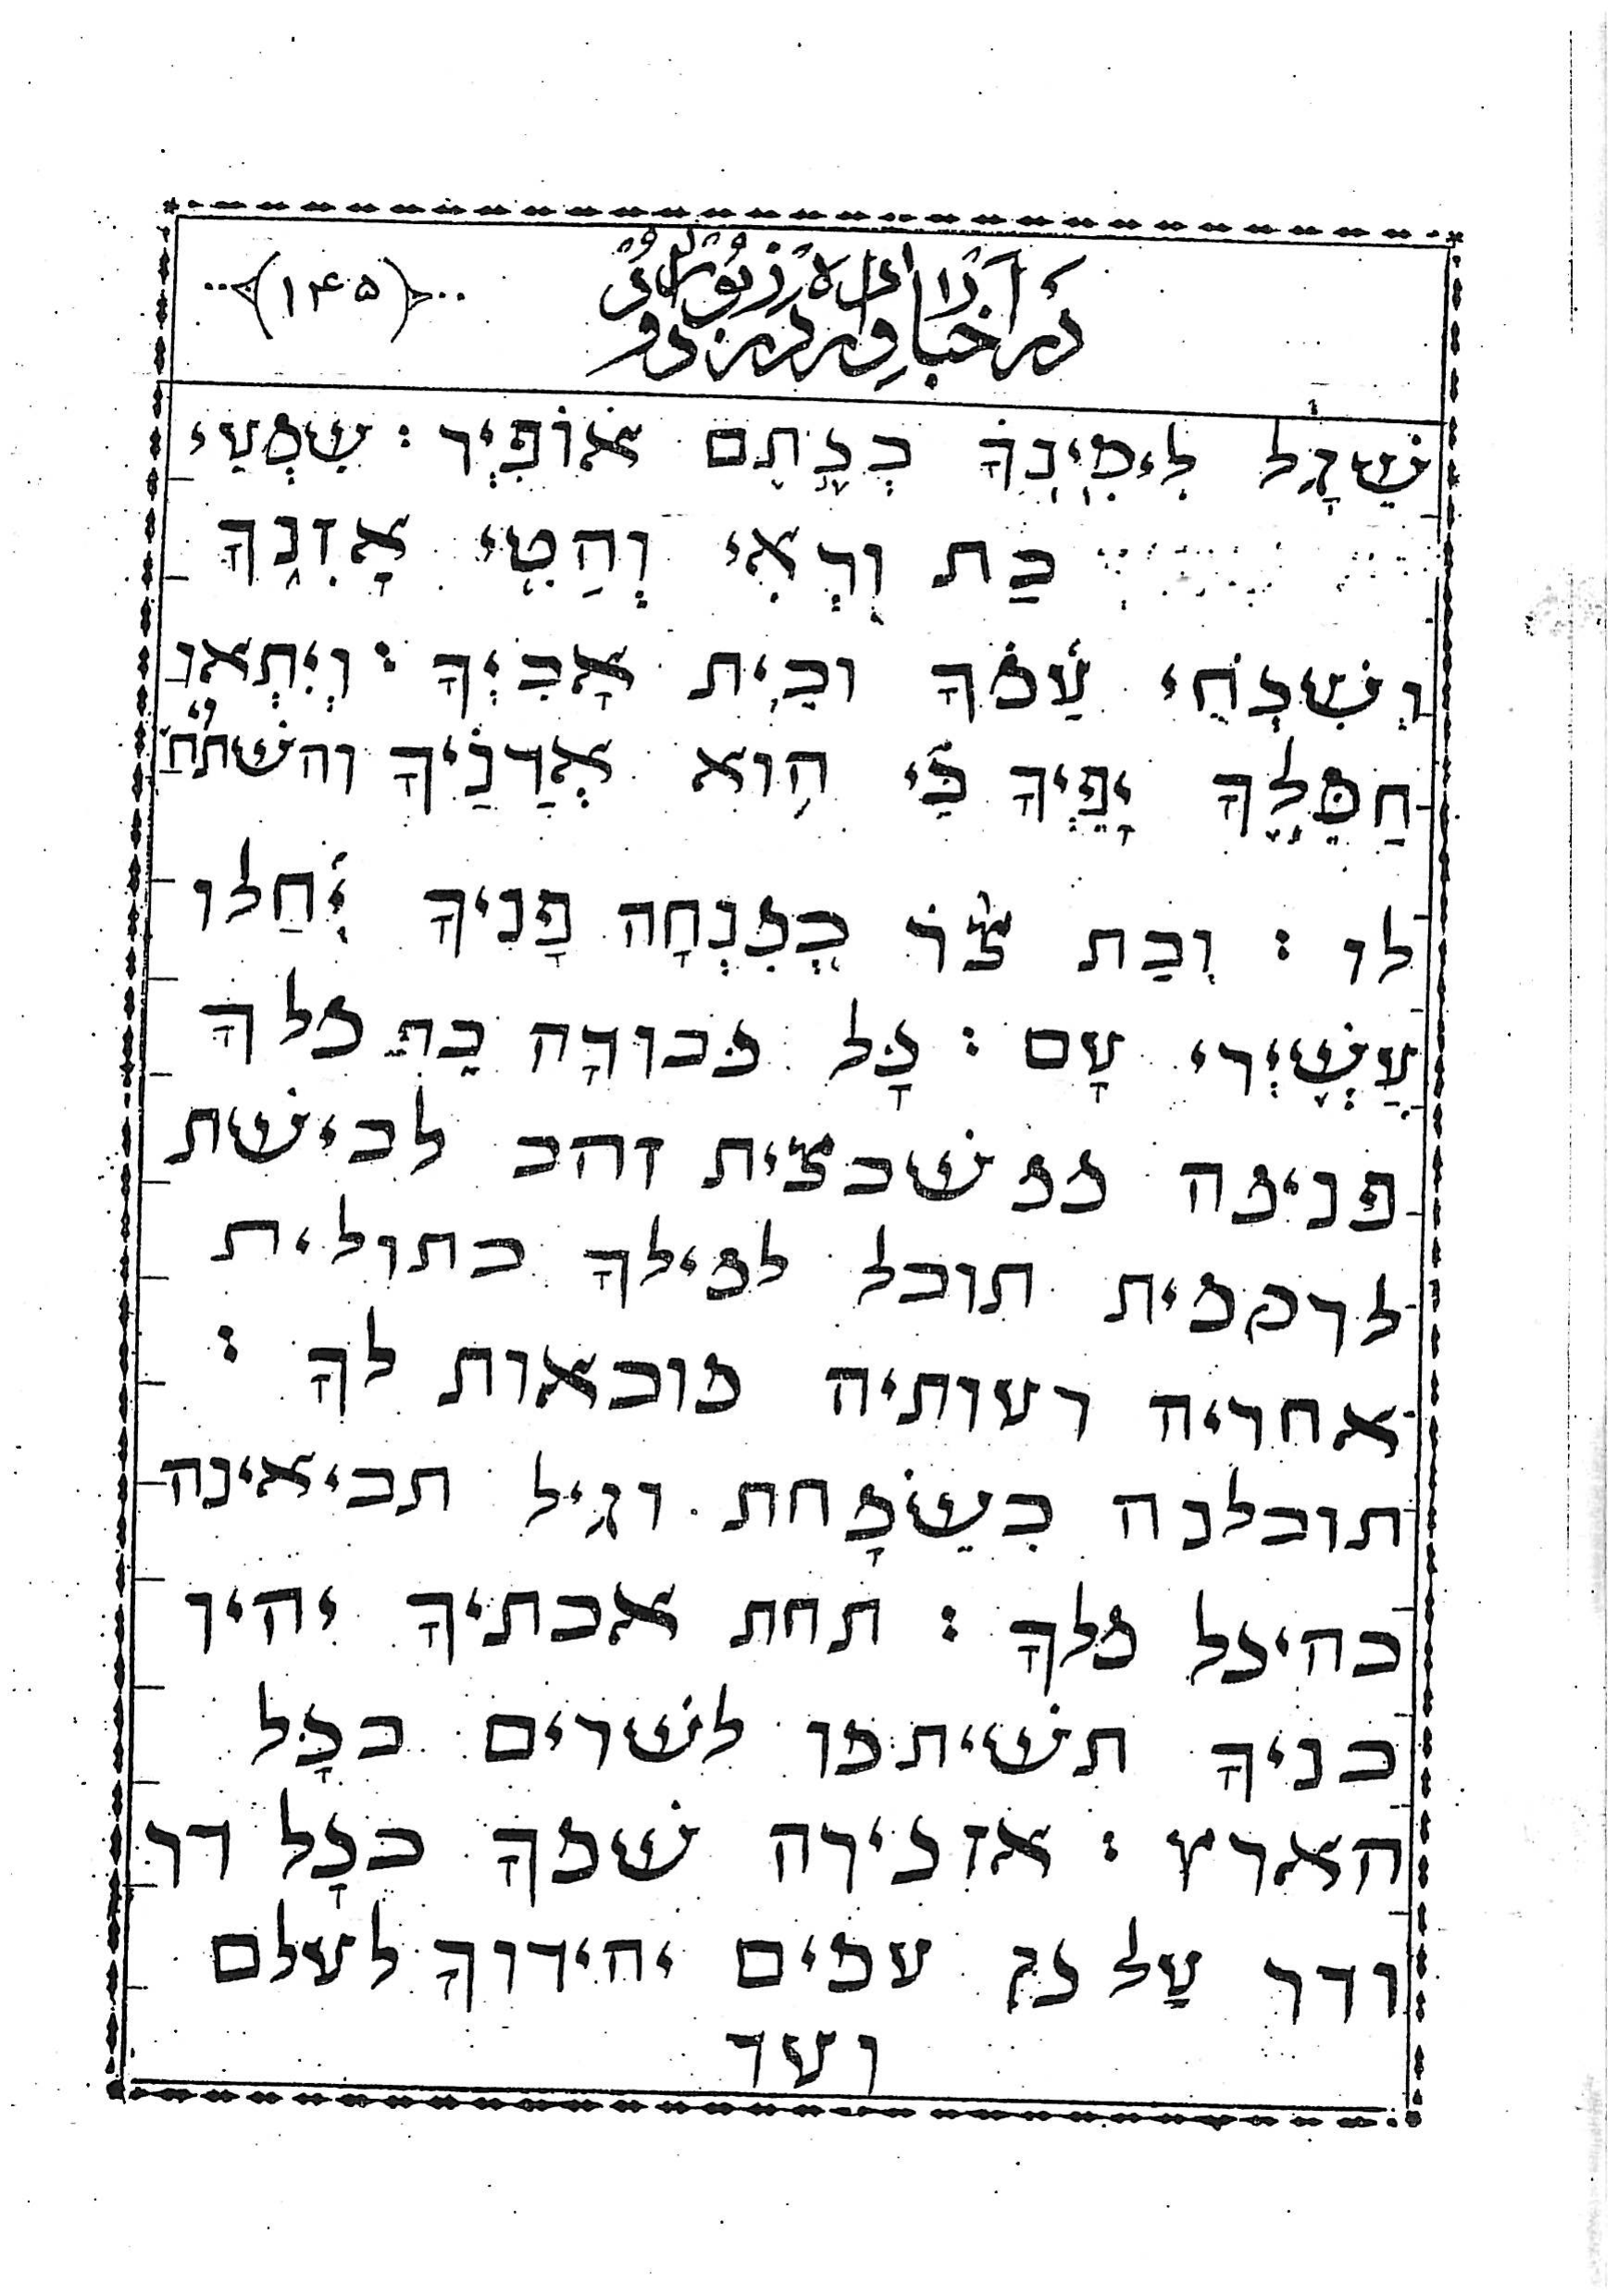 (۱۴۵)
שֵׁגָל לִימִינְךָ כְּכֶתֶם אוֹפִיְר : שִׁמְעִי
בַת וּרְאִי וְהַטִי אָזְנִךָ
וְשִׁכְחִי עַמךָ ובֵית אָבִיְךָ : וְיִתְאָו
הַמֶלֶךָ יָפְיֵךָ כִּי הוּא אֲדֹנַיִךָ והשתח וי
לו : וּבַת צֹר בְמִנְחָה פָניךָ יְחַלו
עֲשִׁיְרי עָם : כָל כבודָה בַת מלךָ
פנימה ממשבצית זהב לבישת
לרקמית תובל למילךָ בתולית
אחריה רעותיה מובאות לךָ :
תובלנה בִשֵמָחת וגיל תביאינה
בהיכל מלךָ : תחת אבתיךָ יהיו
בניךָ תשיתמו לשרים בכָל
הארץ : אזכירה שמךָ בכָל דר
ודר עַל כן עמים יהידוךָ לעלם
ועד